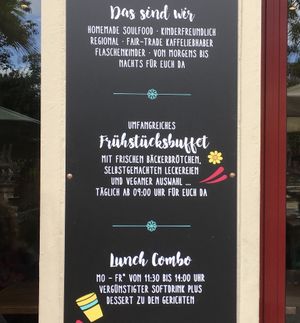 Das sind wir
HOMEMADE SOULFOOD · KINDERFREUNDLICH
REGIONAL · FAIR-TRADE KAFFELIEBHABER
FLASCHENKINDER · VON MORGENS BIS
NACHTS FÜR EUCH DA
UMFANGREICHES
Frühstücksbuffet
MIT FRISCHEN BÄCKERBRÖTCHEN,
SELBSTGEMACHTEN LECKEREIEN
UND VEGANER AUSWAHL ...
TÄGLICH AB 09:00 UHR FÜR EUCH DA
Lunch Combo
MO - FR* VON 11:30 BIS 14:00 UHR
VERGÜNSTIGTER SOFTDRINK PLUS
DESSERT ZU DEN GERICHTEN